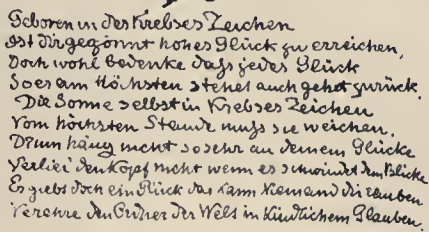 Geboren in des Krebses Zeichen
Ist dir gegönnt hohes Glück zu erreichen,
Doch wohl bedenke daſs jedes Glück
So es am Höchsten stehet auch gehet zurück.
Die Sonne selbst in Krebses Zeichen
Vom höchsten Stande muſs sie weichen.
Drum häng nicht so sehr an deinem Glücke
Verlier den Kopf nicht wenn es schwindet dem Blicke
Es giebt doch ein Glück das kann Niemand dir rauben
Verehre den Ordner der Welt in kindlichem Glauben.